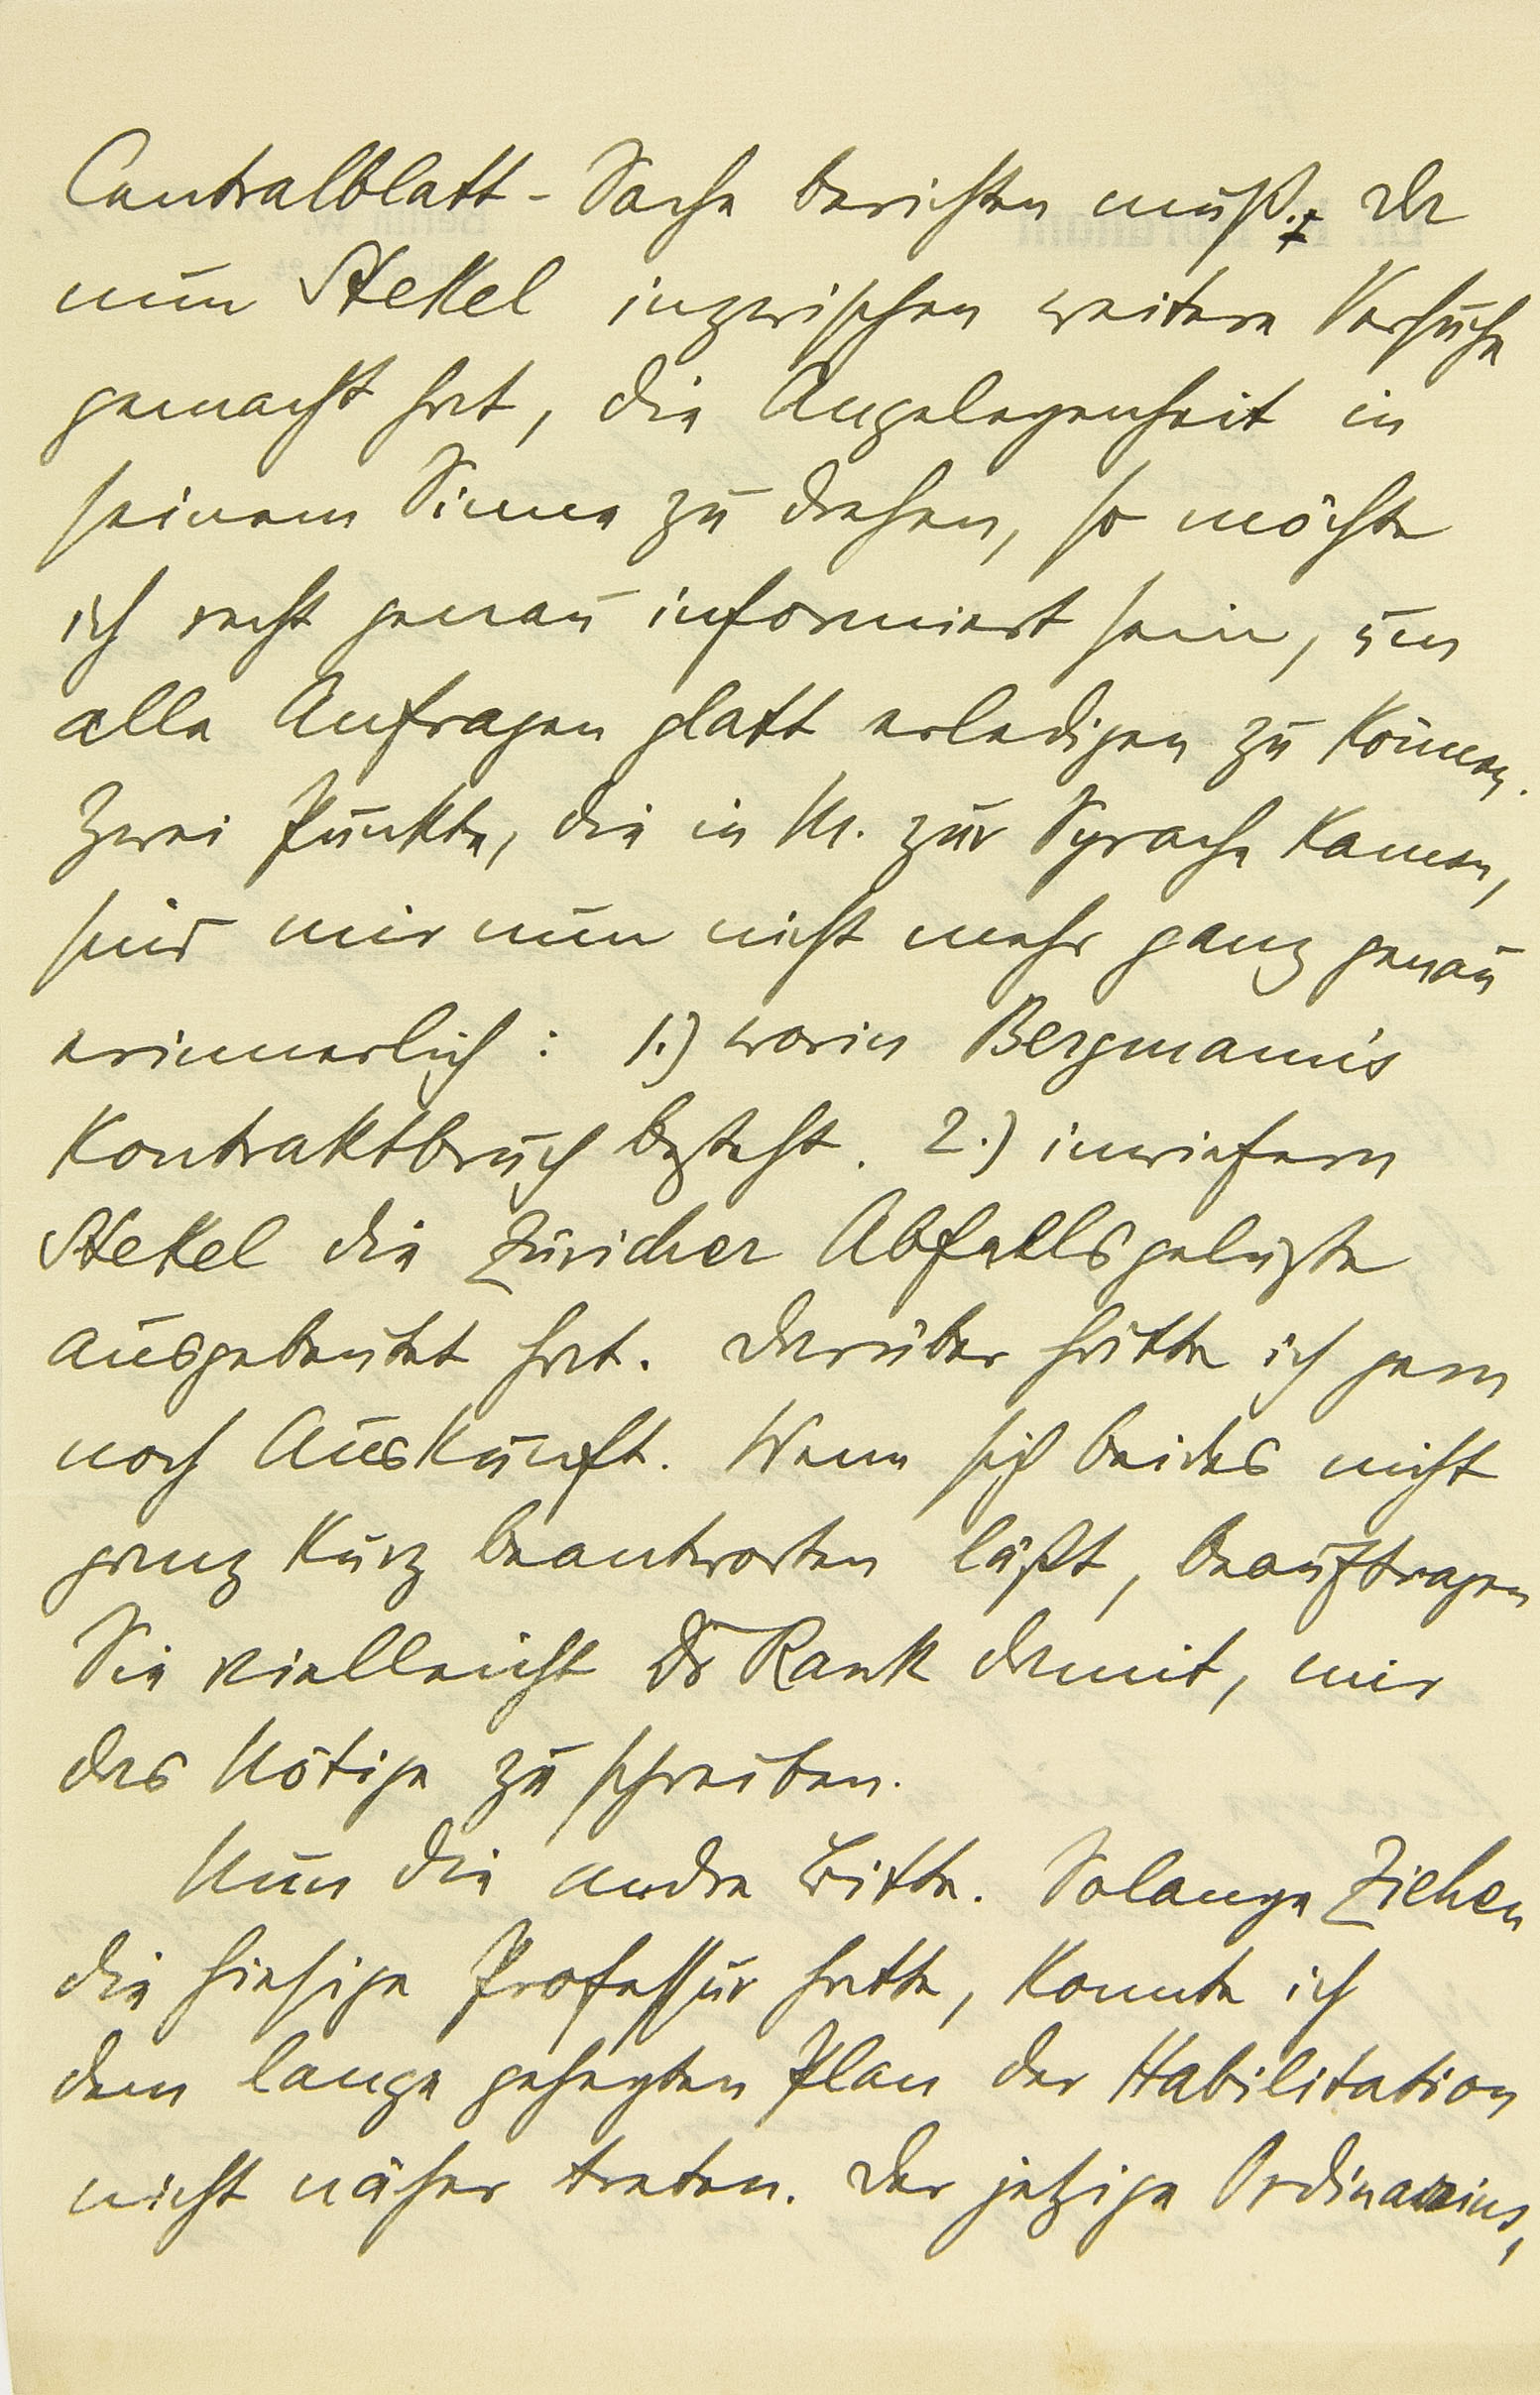 Centralblatt-Sache berichten muß. Da
nun Stekel inzwischen weitere Versuche
gemacht hat, die Angelegenheit in
seinem Sinne zu drehen, so möchte
ich recht genau informiert sein, um
alle Anfragen glatt erledigen zu können.
Zwei Punkte, die in M. zur Sprache kamen,
sind mir nun nicht mehr ganz genau
erinnerlich: 1.) worin Bergmann's
Kontraktbruch besteht. 2.) inwiefern
Stekel die Züricher Abfallsgelüste
ausgebeutet hat. Darüber hätte ich gern
noch Auskunft. Wenn sich beides nicht
ganz kurz beantworten läßt, beauftragen
Sie vielleicht Dr Rank damit, mir
das Nötige zu schreiben.
Nun die andre Bitte. Solange Ziehen
die hiesige Professur hatte, konnte ich
dem lange gehegten Plan der Habilitation
nicht näher treten. Der jetzige Ordinarius,